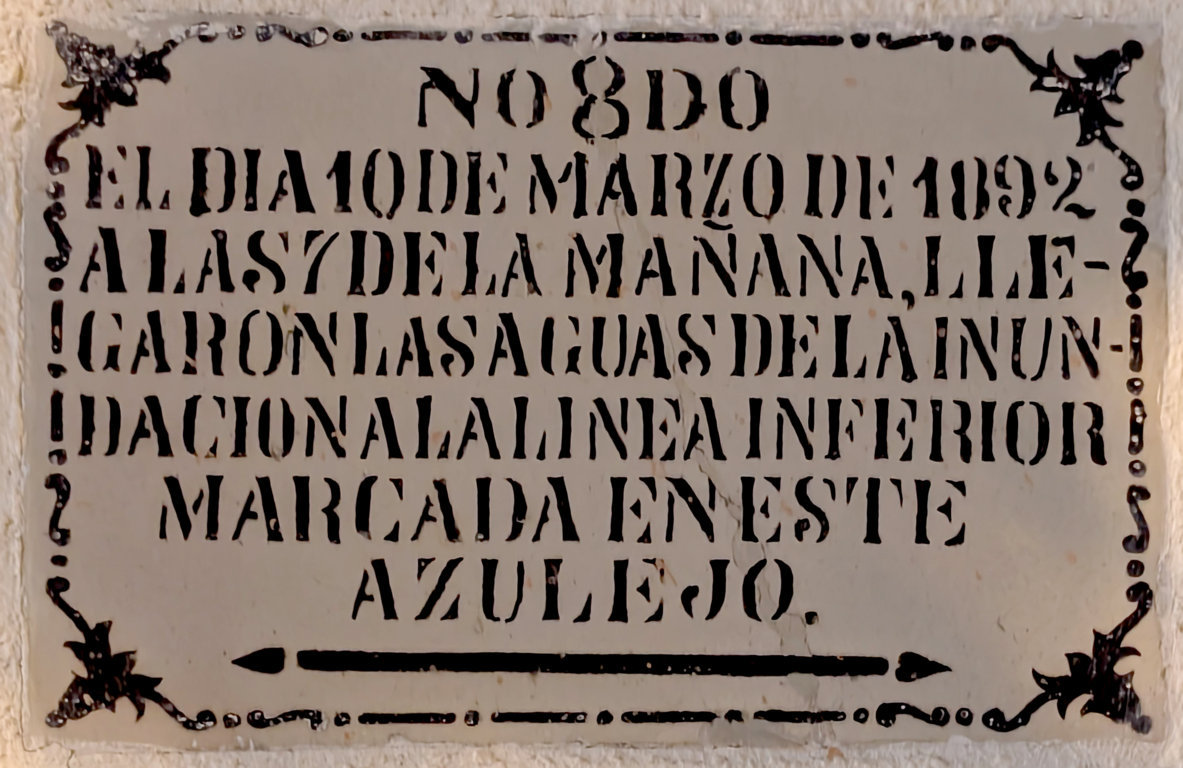 NO8DO
EL DIA 10 DE MARZO DE 1892
A LAS 7 DE LA MAÑANA, LLE-
GARON LAS AGUAS DE LA INUN-
DACION A LA LINEA INFERIOR
MARCADA EN ESTE
AZULEJO.